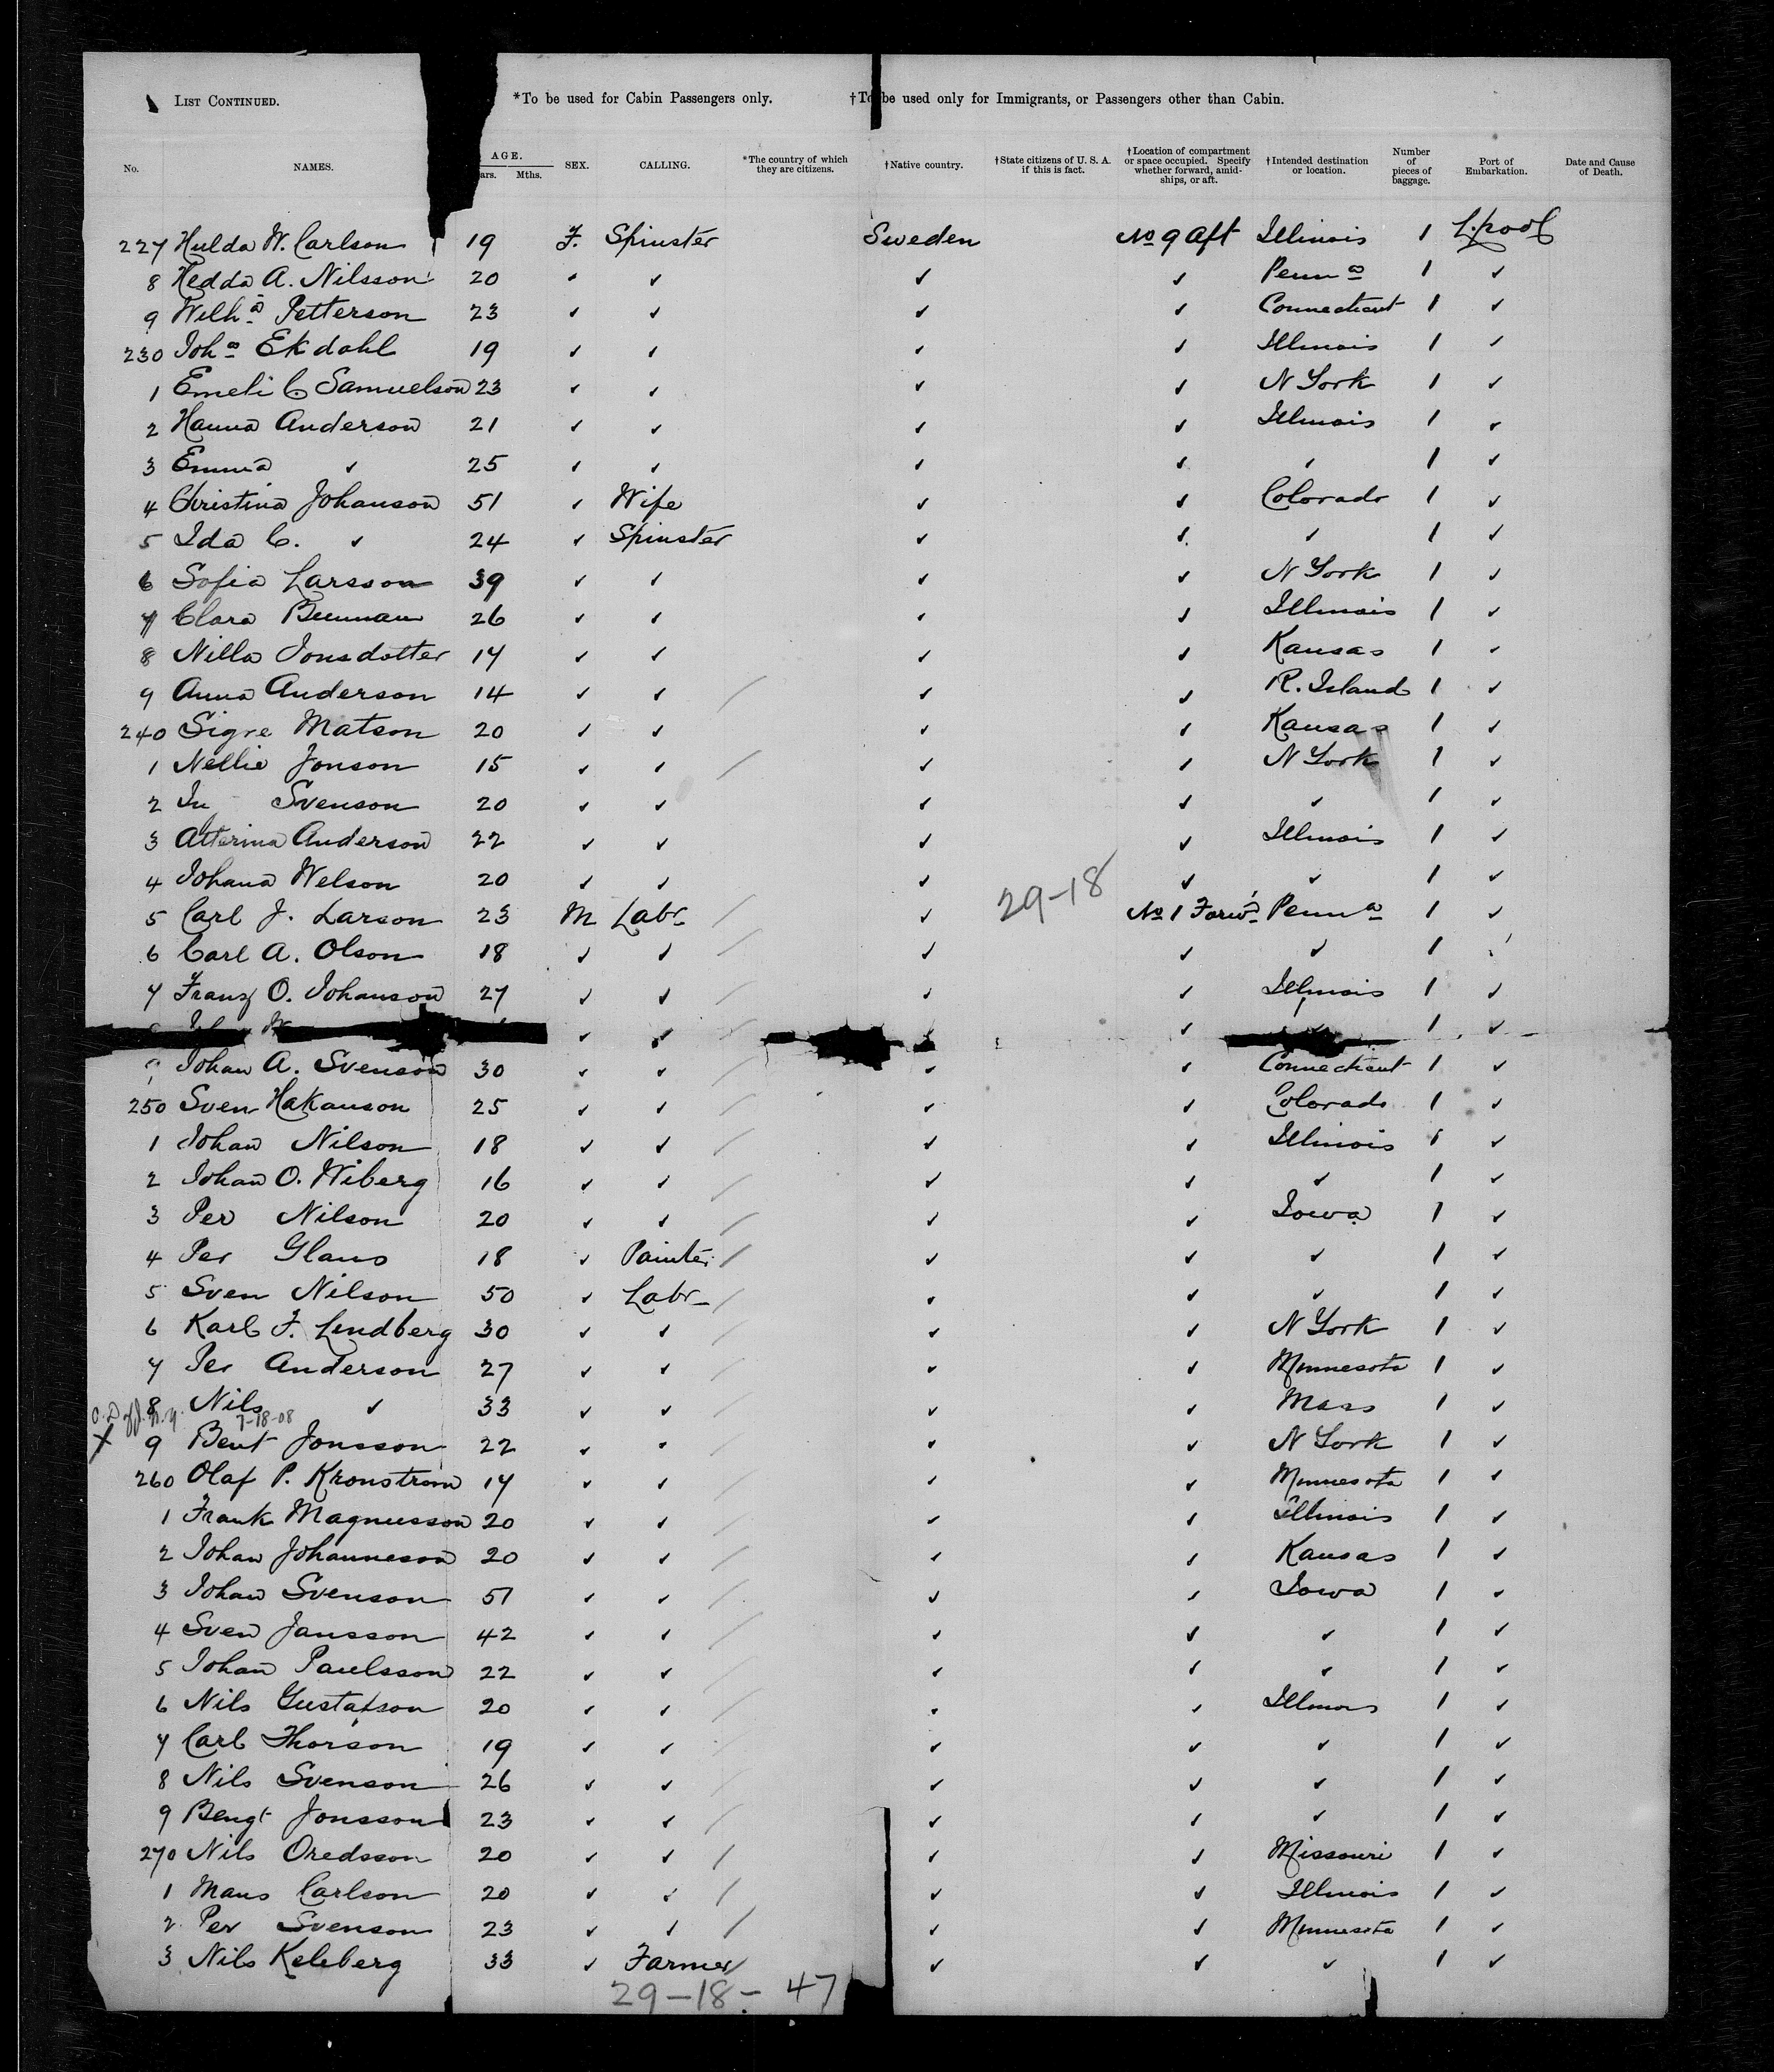 LIST CONTINUED. *To be used for Cabin Passengers only. †To be used only for Immigrants, or Passengers other than Cabin.
No. NAMES. AGE. ars. Mths. SEX. CALLING. *The country of which they are citizens. †Native country. †State citizens of U. S. A. if this is fact. †Location of compartment or space occupied. Specify whether forward, amidships, or aft. †Intended destination or location. Number of pieces of baggage. Port of Embarkation. Date and Cause of Death.
227 Hulda W. Carlson 19 F. Spinster Sweden No 9 Aft Illinois 1 L.pool
8 Hedda A. Nilsson 20 ✓ ✓ ✓ ✓ Penna 1 ✓
9 Wilha Petterson 23 ✓ ✓ ✓ ✓ Connecticut 1 ✓
230 Joha Ekdahl 19 ✓ ✓ ✓ ✓ Illinois 1 ✓
1 Emeli C Samuelson 23 ✓ ✓ ✓ ✓ N York 1 ✓
2 Hanna Anderson 21 ✓ ✓ ✓ ✓ Illinois 1 ✓
3 Emma ✓ 25 ✓ ✓ ✓ ✓ ✓ 1 ✓
4 Christina Johanson 51 ✓ Wife ✓ ✓ Colorado 1 ✓
5 Ida C. ✓ 24 ✓ Spinster ✓ ✓ ✓ 1 ✓
6 Sofia Larsson 39 ✓ ✓ ✓ ✓ N York 1 ✓
7 Clara 26 ✓ ✓ ✓ ✓ Illinois 1 ✓
8 Nilla Jonsdotter 17 ✓ ✓ ✓ ✓ Kansas 1 ✓
9 Anna Anderson 14 ✓ ✓ / ✓ ✓ R. Island 1 ✓
240 Sigre Matson 20 ✓ ✓ ✓ ✓ Kansas 1 ✓
1 Nellie Jonson 15 ✓ ✓ / ✓ ✓ N York 1 ✓
2 Svenson 20 ✓ ✓ ✓ ✓ ✓ 1 ✓
3 Anderson 22 ✓ ✓ ✓ ✓ Illinois 1 ✓
4 Johana Welson 20 ✓ ✓ ✓ 29-18 ✓ ✓ 1 ✓
5 Carl J. Larson 23 M Labr / ✓ No 1 Forwd Penna 1 ✓
6 Carl A. Olson 18 ✓ ✓ / ✓ ✓ ✓ 1 ✓
7 Franz O. Johanson 27 ✓ ✓ / ✓ ✓ Illinois 1 ✓
✓ ✓ / ✓ ✓ ✓ 1 ✓
9 Johan A. Svenson 30 ✓ ✓ / ✓ ✓ Connecticut 1 ✓
250 Sven Hakanson 25 ✓ ✓ / ✓ ✓ Colorado 1 ✓
1 Johan Nilson 18 ✓ ✓ / ✓ ✓ Illinois 1 ✓
2 Johan O. Wiberg 16 ✓ ✓ / ✓ ✓ ✓ 1 ✓
3 Per Nilson 20 ✓ ✓ / ✓ ✓ Iowa 1 ✓
4 Per Glans 18 ✓ Painter / ✓ ✓ ✓ 1 ✓
5 Sven Nilson 50 ✓ Labr / ✓ ✓ ✓ 1 ✓
6 Karl F. Lindberg 30 ✓ ✓ / ✓ ✓ N York 1 ✓
7 Per Anderson 27 ✓ ✓ / ✓ ✓ Minnesota 1 ✓
8 Nils ✓ 33 ✓ ✓ / ✓ ✓ Mass 1 ✓
7-18-08
X 9 Bent Jonsson 22 ✓ ✓ / ✓ ✓ N York 1 ✓
260 Olaf P. Kronstrom 17 ✓ ✓ / ✓ ✓ Minnesota 1 ✓
1 Frank Magnusson 20 ✓ ✓ / ✓ ✓ Illinois 1 ✓
2 Johan Johanneson 20 ✓ ✓ / ✓ ✓ Kansas 1 ✓
3 Johan Svenson 51 ✓ ✓ / ✓ ✓ Iowa 1 ✓
4 Sven Jansson 42 ✓ ✓ / ✓ ✓ ✓ 1 ✓
5 Johan Paulsson 22 ✓ ✓ / ✓ ✓ ✓ 1 ✓
6 Nils Gustafson 20 ✓ ✓ / ✓ ✓ Illinois 1 ✓
7 Carl Thorson 19 ✓ ✓ / ✓ ✓ ✓ 1 ✓
8 Nils Svenson 26 ✓ ✓ / ✓ ✓ ✓ 1 ✓
9 Bengt Jonsson 23 ✓ ✓ / ✓ ✓ ✓ 1 ✓
270 Nils Oredsson 20 ✓ ✓ / ✓ ✓ Missouri 1 ✓
1 Mans Carlson 20 ✓ ✓ / ✓ ✓ Illinois 1 ✓
2 Per Svenson 23 ✓ ✓ / ✓ ✓ Minnesota 1 ✓
3 Nils Keleberg 33 ✓ Farmer / ✓ ✓ ✓ 1 ✓
29-18- 47